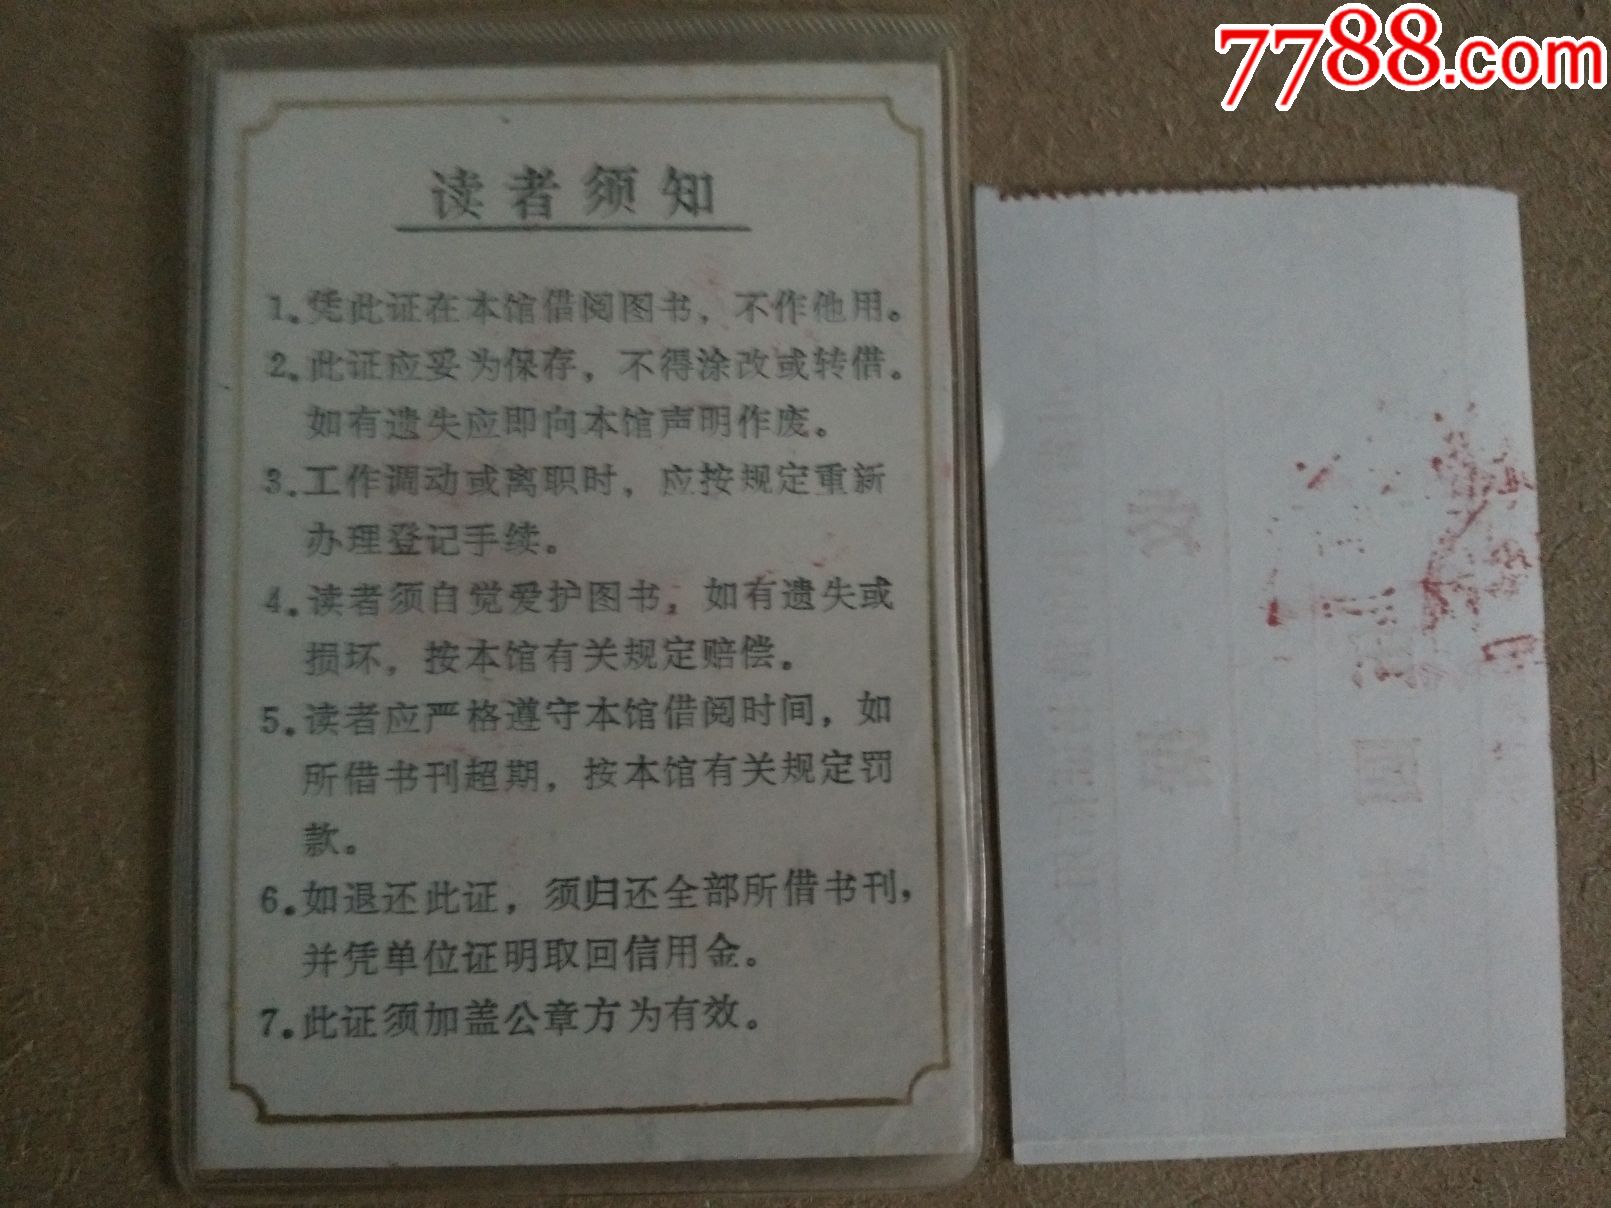 7788.com
读者须知
1.凭此证在本馆借阅图书，不作他用。
2.此证应妥为保存，不得涂改或转借。
如有遗失应即向本馆声明作废。
3.工作调动或离职时，应按规定重新
办理登记手续。
4.读者须自觉爱护图书，如有遗失或
损坏，按本馆有关规定赔偿。
5.读者应严格遵守本馆借阅时间，如
所借书刊超期，按本馆有关规定罚
款。
6.如退还此证，须归还全部所借书刊，
并凭单位证明取回信用金。
7.此证须加盖公章方为有效。